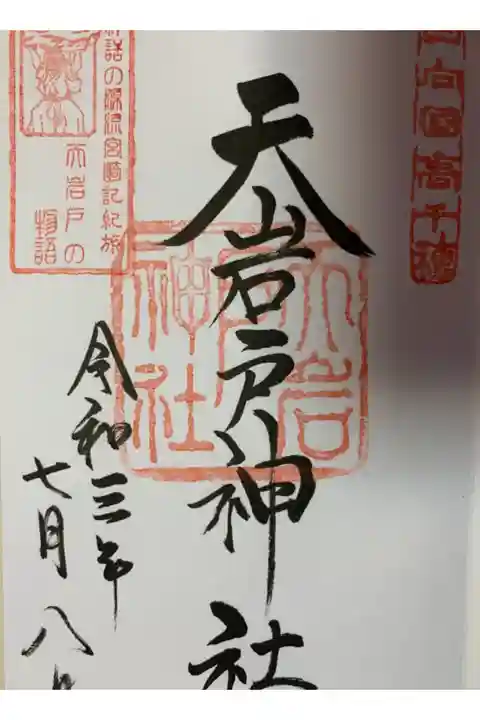 日向國高千穂
天岩戸神社
天岩戸神社
令和三年
七月八日
神話の源流宮崎記紀旅
天岩戸の
物語